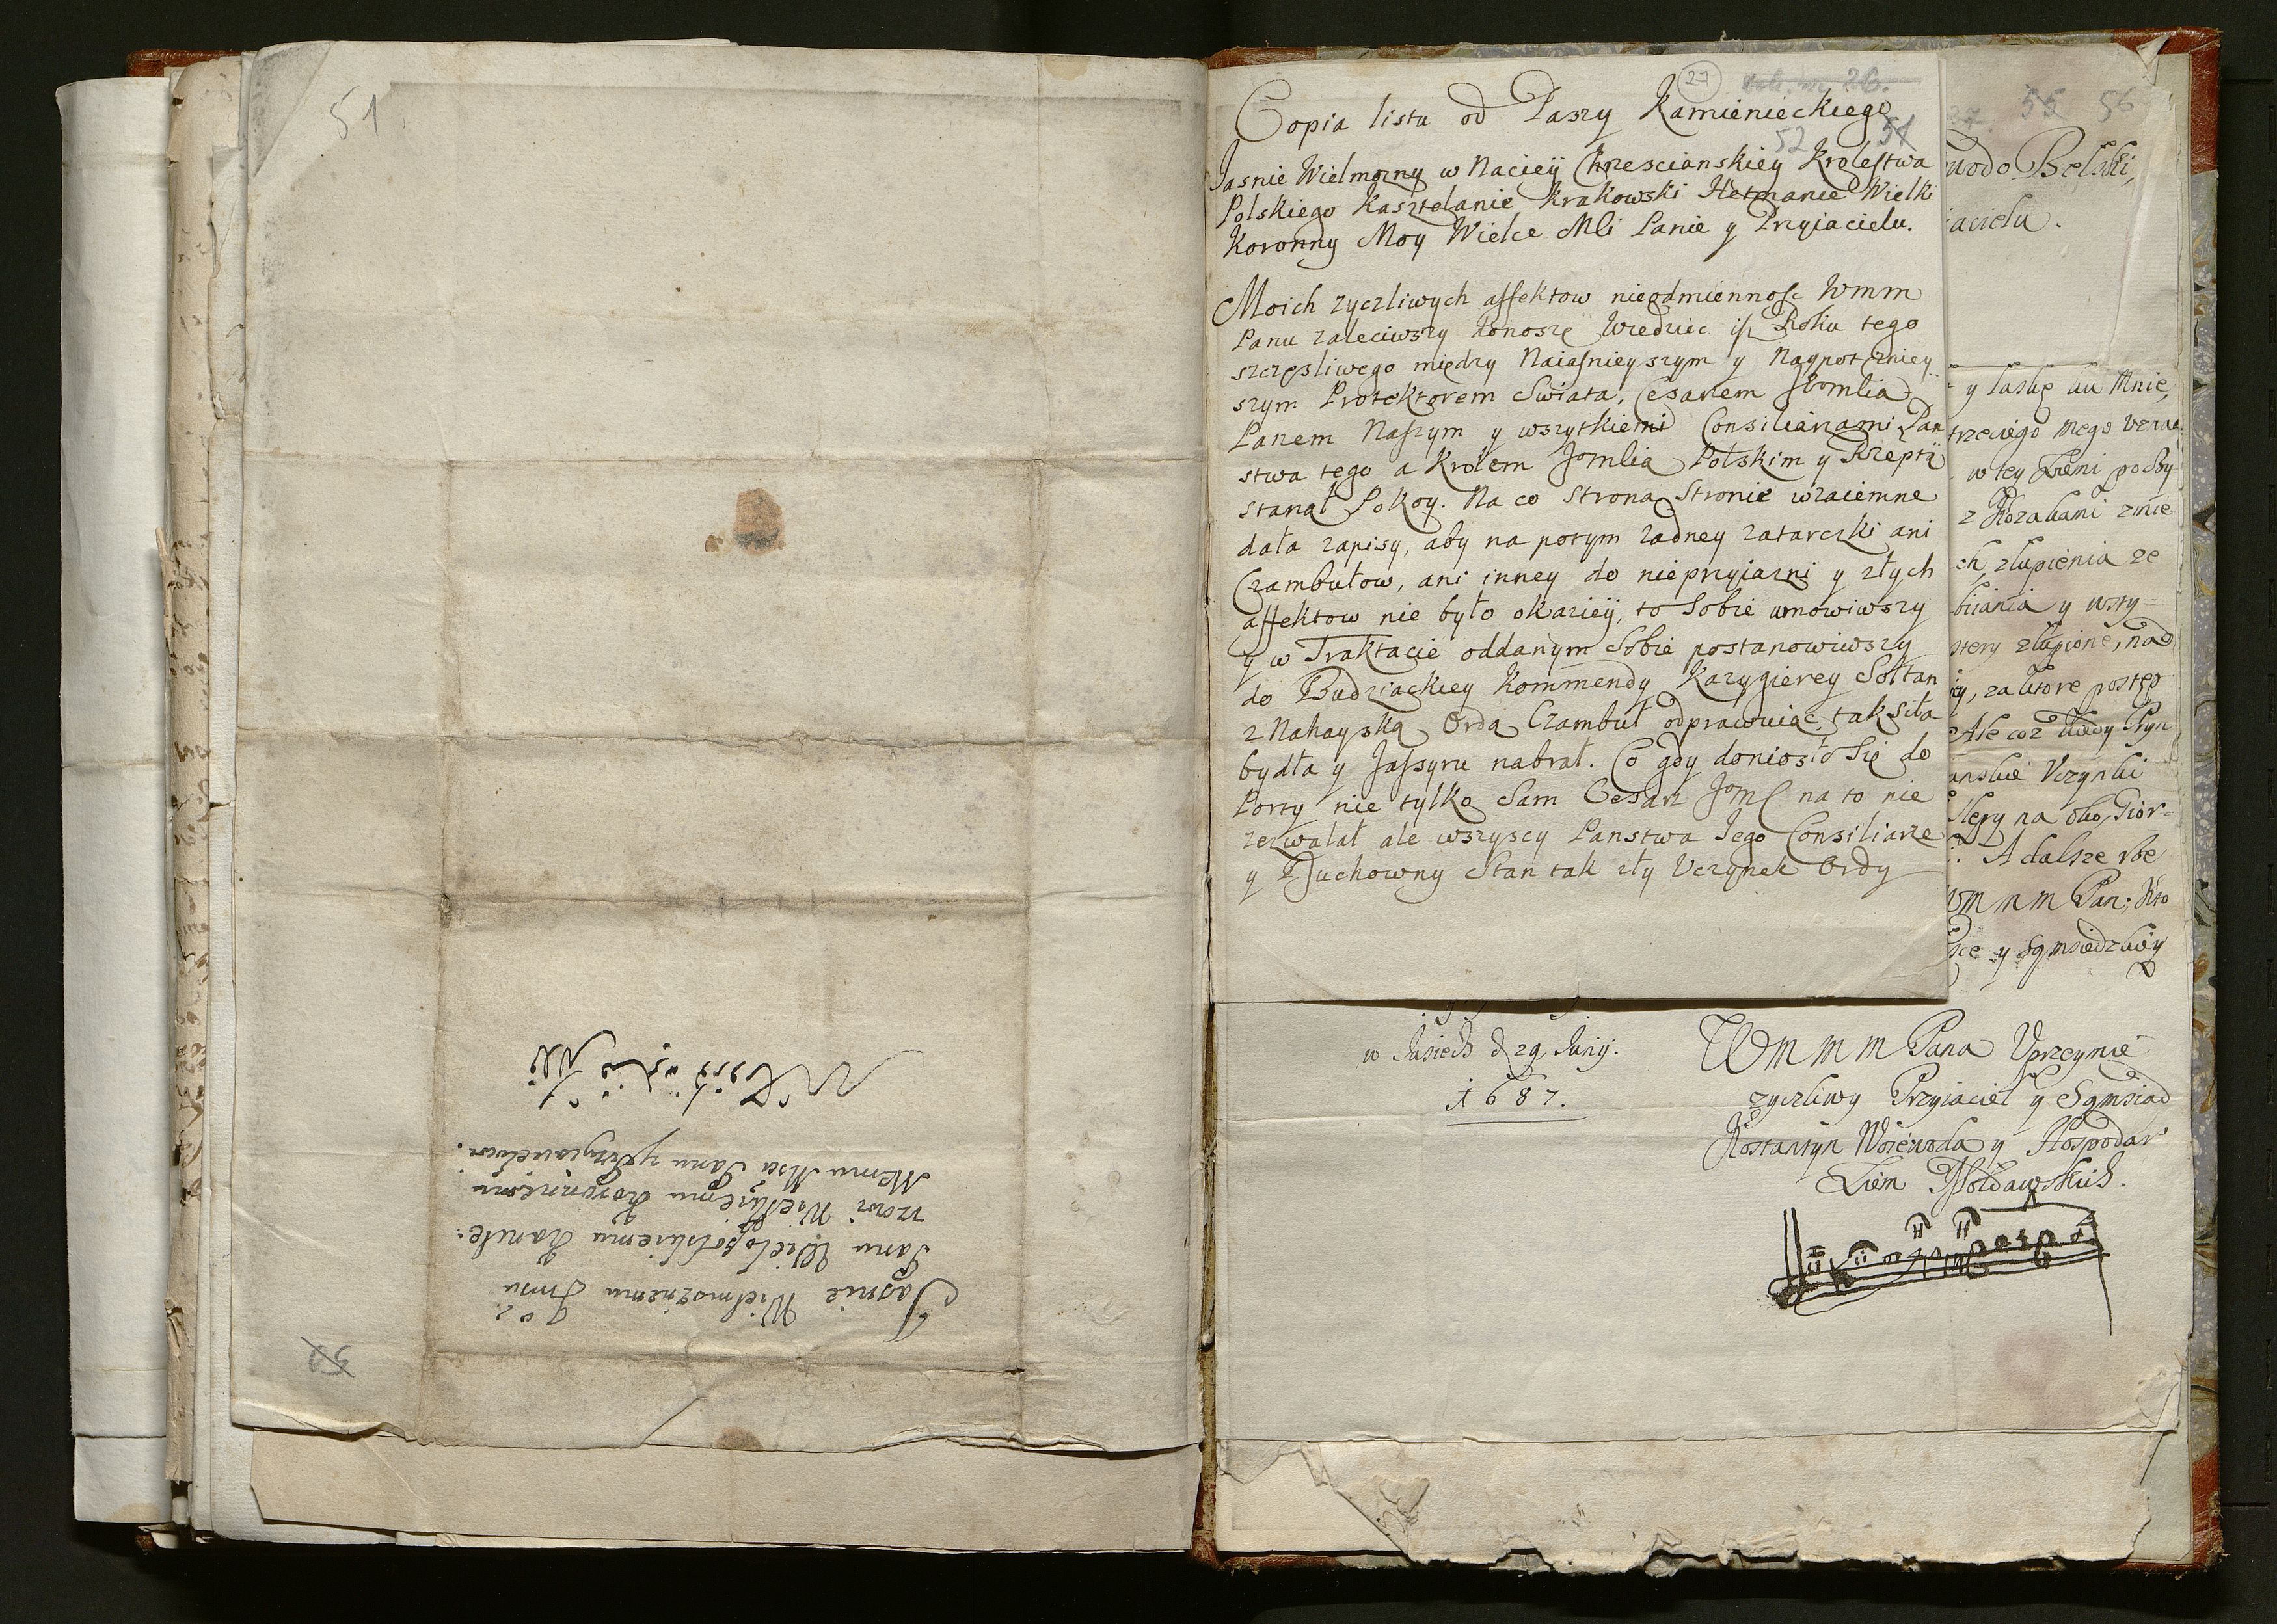 51
Jasnie Wielmożnemu Jmsci
Panu Wielopolskiemu Kancle-
rzowi Wielkiemu Koronnemu
Memu Msci Panu y Przyiacielowi.
50
27
52 51
Copia listu od Paszy Kamienieckiego
Jasnie Wielmozny w Naciey Chrescianskiey Krolestwa
Polskiego Kasztelanie Krakowski Hetmanie Wielki
Koronny Moy Wielce Mli Panie y Przyiacielu.
Moich zyczliwych affektow nieodmiennosc Wmm
Panu zaleciwszy donoszę wiedziec isz Roku tego
szczęsliwego między Naiasnieyszym y Naypotęzniey
szym Protektorem Swiata, Cesarzem Jomscią
Panem Naszym y wszytkiemi Consiliarzami Pan
stwa tego a Krolem Jomscią Polskim y Rzeptą
stanął Pokoy. Na co Strona Stronie wzaiemne
dała zapisy, aby na potym zadney zatarczki ani
Czambułow, ani inney do nieprzyiazni y złych
affektow nie było okaziey, to Sobie umowiwszy
y w Traktacie oddanym Sobie postanowiwszy
do Budziackiey Kommendy Kazygierey Sołtan
z Nahayską Ordą Czambuł odprawuiąc tak siła
bydła y Jassyru nabrał. Co gdy doniosło się do
Porty nie tylko Sam Cesarz Jomsc na to nie
zezwalał ale wszyscy Panstwa Jego Consiliarze
y Duchowny Stan tak zły Uczynek Ordy
55 56
wodo Belski,
iacielu.
y łaskę ku Mnie,
trzeciego mego
w tey Ziemi
z Kozakami znie
ch złupienia ze
biiania y
złupione, nad
za ktore postęp
Ale coz kiedy Pryn
Uczynki
na oko
A dalsze
Wm m m Pan; Kto
y Sąmsiedzkiey
w Jasiech d 29 Junij.
1687.
Wm m m Pana Uprzeymie
zyczliwy Przyiaciel y Sąmsiad
Kostantyn Woiewoda y Hospodar
Ziem Mołdawskich.